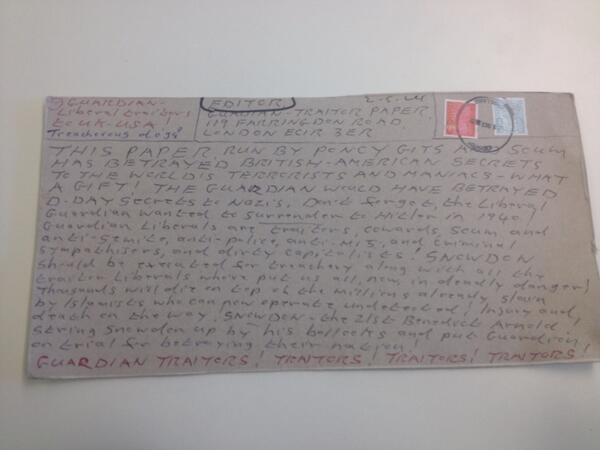 GUARDIAN-
Liberal traitors
to UK-USA!
Treacherous dogs!
EDITOR
2-5-14
GUARDIAN-TRAITOR PAPER,
119 FARRINGDON ROAD,
LONDON EC1R 3ER
THIS PAPER, RUN BY PONCY GITS AND SCUM
HAS BETRAYED BRITISH-AMERICAN SECRETS
TO THE WORLDS TERRORISTS AND MANIACS - WHAT
A GIFT! THE GUARDIAN WOULD HAVE BETRAYED
D-DAY SECRETS to NAZIS. Don't forget, the Liberal
Guardian wanted to surrender to Hitler in 1940!
Guardian Liberals are traitors, cowards, scum and
anti-Semite, anti-police, anti-MI5, and criminal
sympathisers, and dirty capitalists! SNOWDON
should be executed for treachery along with all the
traitor Liberals who've put us all, now, in deadly danger!
Thousands will die on top of the millions already slain
by Islamists who can now operate undetected! Injury and
death on the way! SNOWDON - the 21st Benedict Arnold!
String Snowdon up by his bollocks and put Guardian
on trial for betraying their nation!
GUARDIAN TRAITORS! TRAITORS! TRAITORS! TRAITORS!